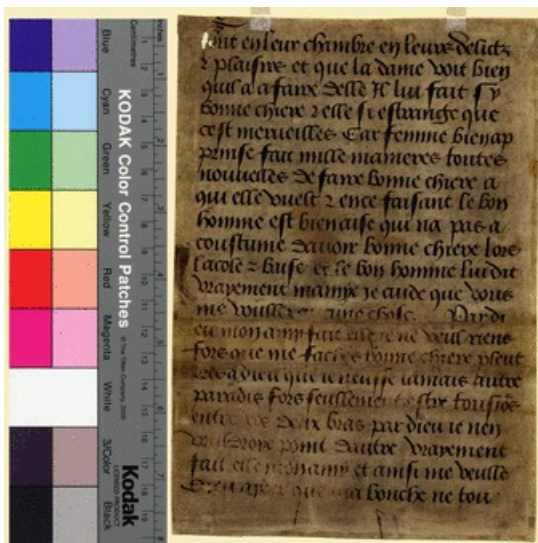 Blue
Cyan
Green
Yellow
Red
Magenta
White
3/Color
Black
KODAK Color Control Patches
© The Tiffen Company, 2000
Kodak
LICENSED PRODUCT
Centimetres
Inches
font en leur chambre en leurs delictz
⁊ plaisirs et que la dame voit bien
quil a a faire delle Il lui fait sy
bonne chiere ⁊ elle si estrange que
cest merveilles Car femme bien ap
prinse fait mille manieres toutes
nouvelles de faire bonne chiere a
qui elle vuelt ⁊ en ce faisant le bon
homme est bien aise qui na pas a
coustume davoir bonne chiere lors
lacole ⁊ baise et le bon homme lui dit
vrayement mamye je cuide que vous
me voullez aucune chose Par di
eu mon amy fait elle je ne veul riens
fors que me faciez bonne chiere pleut
a dieu que je neusse jamais autre
paradis fors seullement estre tousjors
entre vos deux bras par dieu je nen
vouldroye point dautre vrayement
fait elle mon amy et ainsi me veulle
Dieu aider que ma bouche ne tou